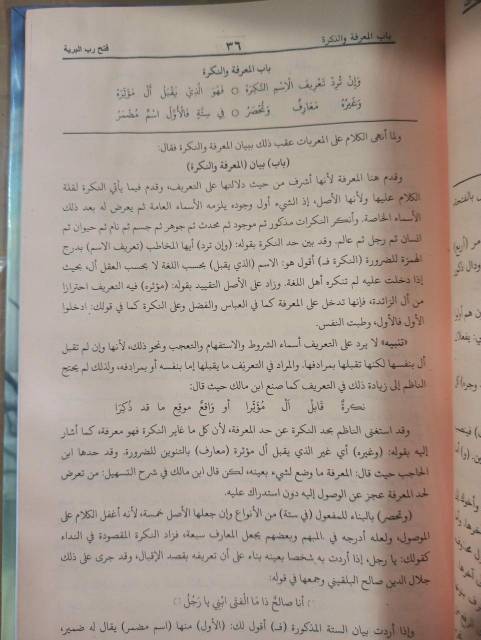 باب المعرفة والنكرة ٣٦ فتح رب البرية
باب المعرفة والنكرة
وَإِنْ تُرِدْ تَعْرِيفَ الِاسْمِ النَّكِرَهْ ○ فَهْوَ الَّذِي يَقْبَلُ أَلْ مُؤَثِّرَهْ
وَغَيْرُهُ مَعَارِفٌ وَتُحْصَرُ ○ فِي سِتَّةٍ فَالْأَوَّلُ اسْمٌ مُضْمَرُ
ولما أنهى الكلام على المعربات عقب ذلك ببيان المعرفة والنكرة فقال:
(باب) بيان (المعرفة والنكرة)
وقدم هنا المعرفة لأنها أشرف من حيث دلالتها على التعريف، وقدم فيما يأتي النكرة لقلة
الكلام عليها ولأنها الأصل، إذ الشيء أول وجوده يلزمه الأسماء العامة ثم يعرض له بعد ذلك
الأسماء الخاصة. وأنكر النكرات مذكور ثم موجود ثم محدث ثم جوهر ثم جسم ثم نام ثم حيوان ثم
انسان ثم رجل ثم عالم. وقد بين حد النكرة بقوله: (وإن ترد) أيها المخاطب (تعريف الاسم) بدرج
الهمزة للضرورة (النكرة فـ) أقول هو: الاسم (الذي يقبل) بحسب اللغة لا بحسب العقل أل، بحيث
إذا دخلت عليه لم تنكره أهل اللغة. وزاد على الأصل التقييد بقوله: (مؤثرة) فيه التعريف احترازا
من أل الزائدة، فإنها تدخل على المعرفة كما في العباس والفضل وعلى النكرة كما في قولك: ادخلوا
الأول فالأول، وطبت النفس.
«تنبيه» لا يرد على التعريف أسماء الشروط والاستفهام والتعجب ونحو ذلك، لأنها وإن لم تقبل
أل بنفسها لكنها تقبلها بمرادفها. والمراد في التعريف ما يقبلها إما بنفسه أو بمرادفه، ولذلك لم يحتج
الناظم إلى زيادة ذلك في التعريف كما صنع ابن مالك حيث قال:
نَكِرةٌ قابلُ أَلْ مُؤَثِّرا أو وَاقعٌ موقِع ما قد ذُكِرَا
وقد استغنى الناظم بحد النكرة عن حد المعرفة، لأن كل ما غاير النكرة فهو معرفة، كما أشار
إليه بقوله: (وغيره) أي غير الذي يقبل أل مؤثرة (معارف) بالتنوين للضرورة. وقد حدها ابن
الحاجب حيث قال: المعرفة ما وضع لشيء بعينه، لكن قال ابن مالك في شرح التسهيل: من تعرض
لحد المعرفة عجز عن الوصول إليه دون استدراك عليه.
(وتحصر) بالبناء للمفعول (في ستة) من الأنواع وإن جعلها الأصل خمسة، لأنه أغفل الكلام على
الموصول، ولعله أدرجه في المبهم وبعضهم يجعل المعارف سبعة، فزاد النكرة المقصودة في النداء
كقولك: يا رجل، إذا أردت به شخصا بعينه بناء على أن تعريفه بقصد الإقبال، وقد جرى على ذلك
جلال الدين صالح البلقيني وجمعها في قوله:
أنا صالحٌ ذا مَا الْفتَى ابْنِي يا رَجُلُ
وإذا أردت بيان الستة المذكورة (فـ) أقول لك: (الأول) منها (اسم مضمر) يقال له ضمير،